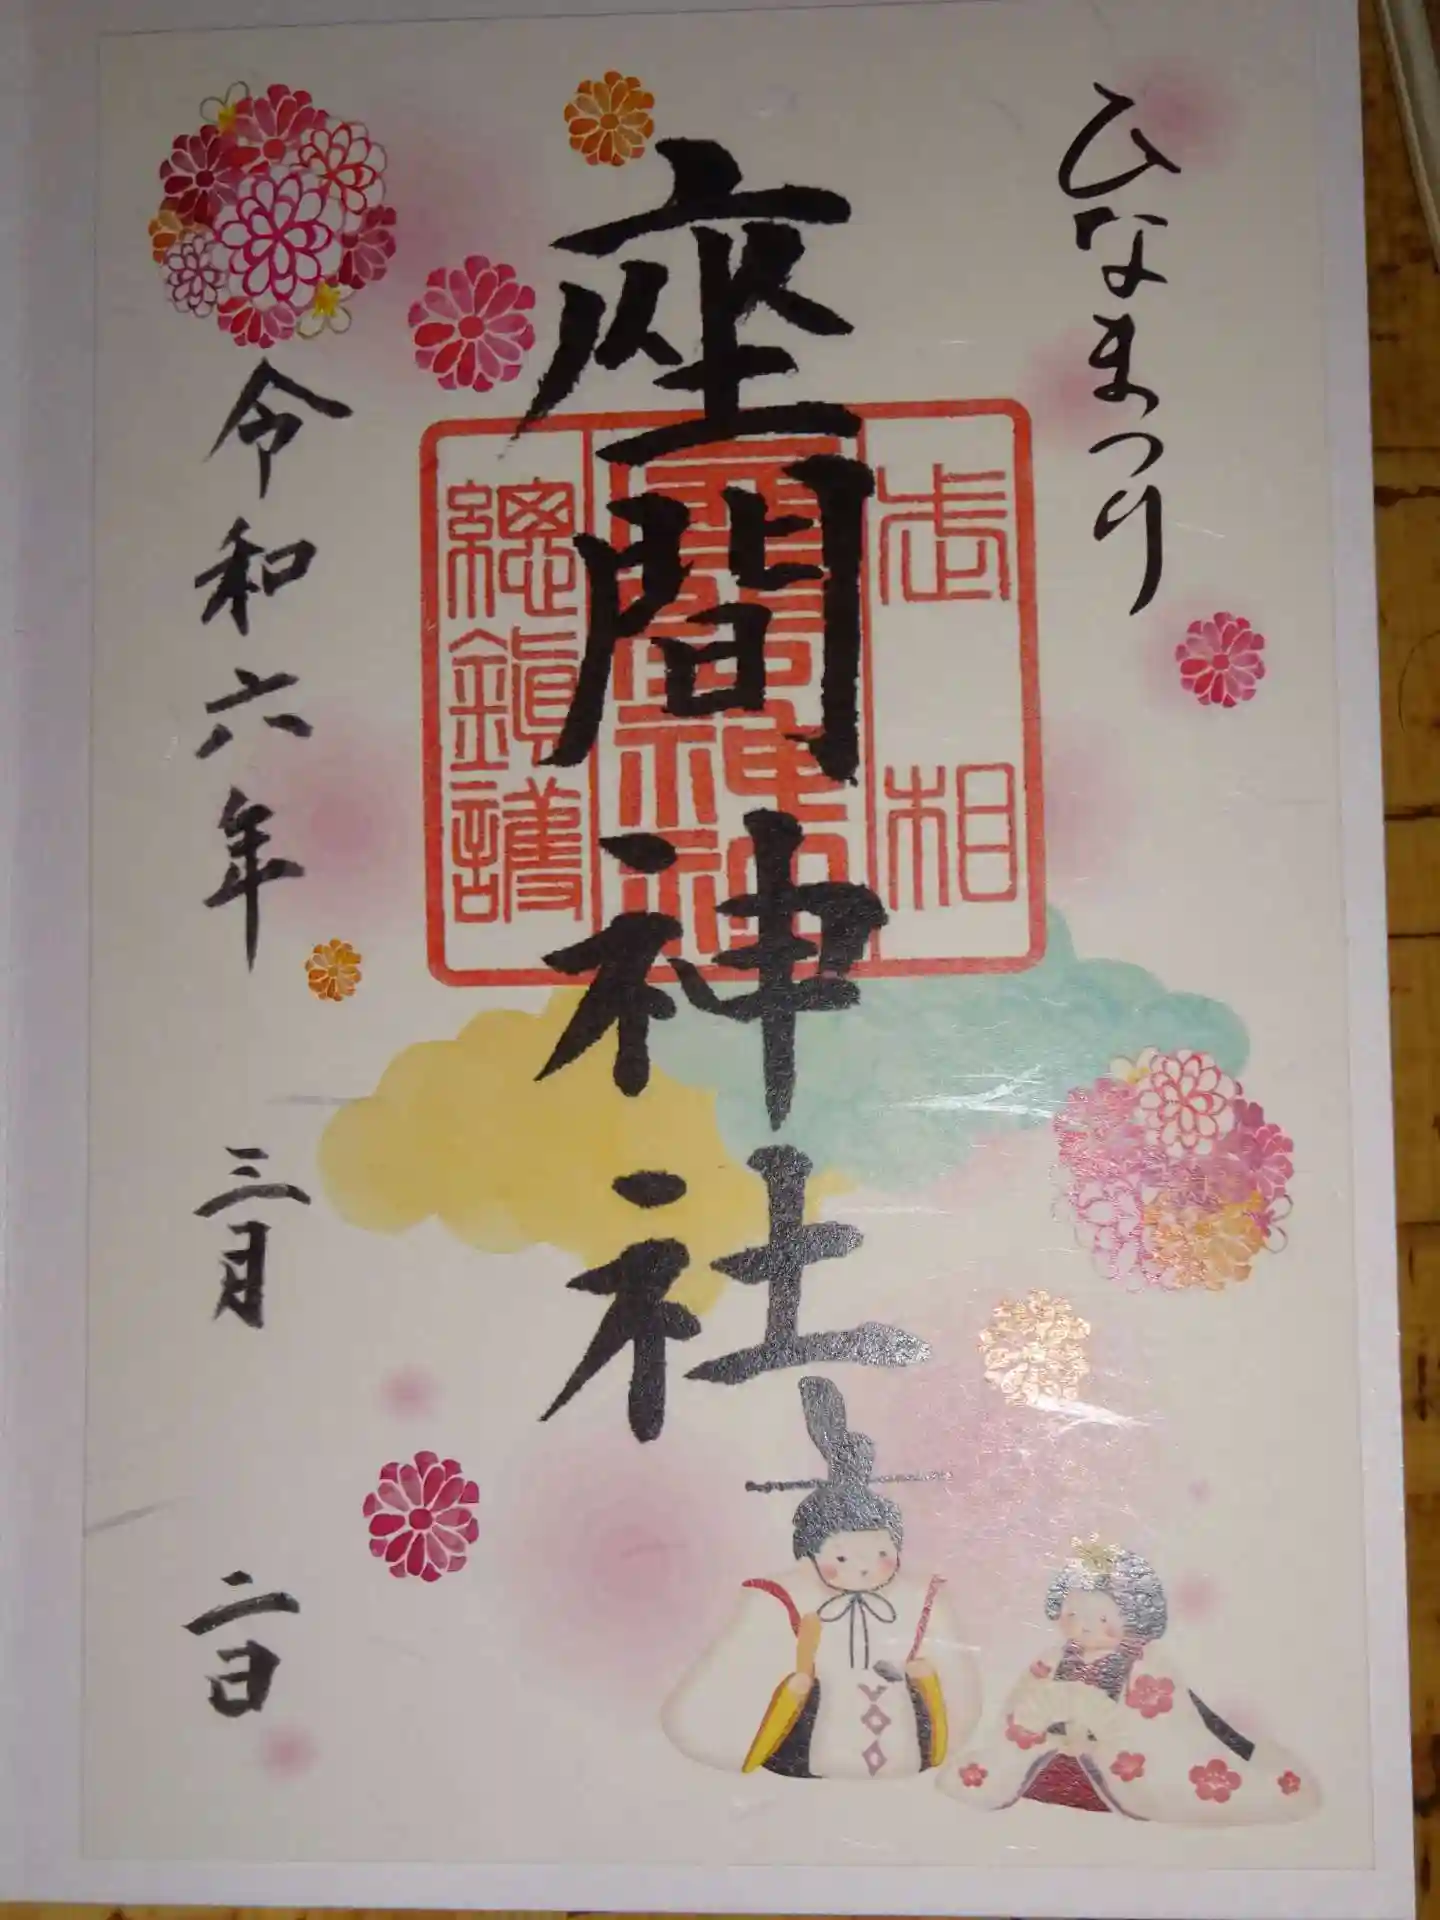 ひなまつり
座間神社
相武
座間神社
總鎮護
令和六年 三月 二日